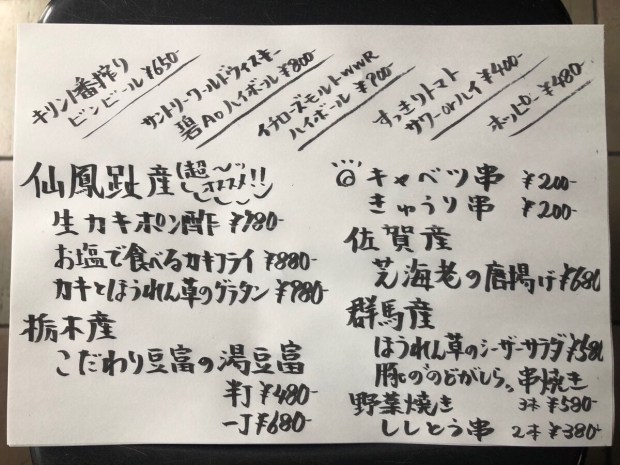 キリン一番搾り
ビンビール ¥650
サントリーワールドウィスキー
碧Ao ハイボール ¥800
イチローズモルトWWR
ハイボール ¥900
すっきりトマト
サワーorハイ ¥400-
ホッピー ¥480-
仙鳳趾産 超〜オススメ!!
生カキポン酢 ¥780-
お塩で食べるカキフライ ¥880-
カキとほうれん草のグラタン ¥980-
栃木産
こだわり豆富の湯豆富
半丁 ¥480-
一丁 ¥680-
キャベツ串 ¥200-
きゅうり串 ¥200-
佐賀産
芝海老の唐揚げ ¥680
群馬産
ほうれん草のシーザーサラダ ¥580
豚の"のどがしら"串焼き
3本 ¥580-
野菜焼き
ししとう串 2本 ¥380-